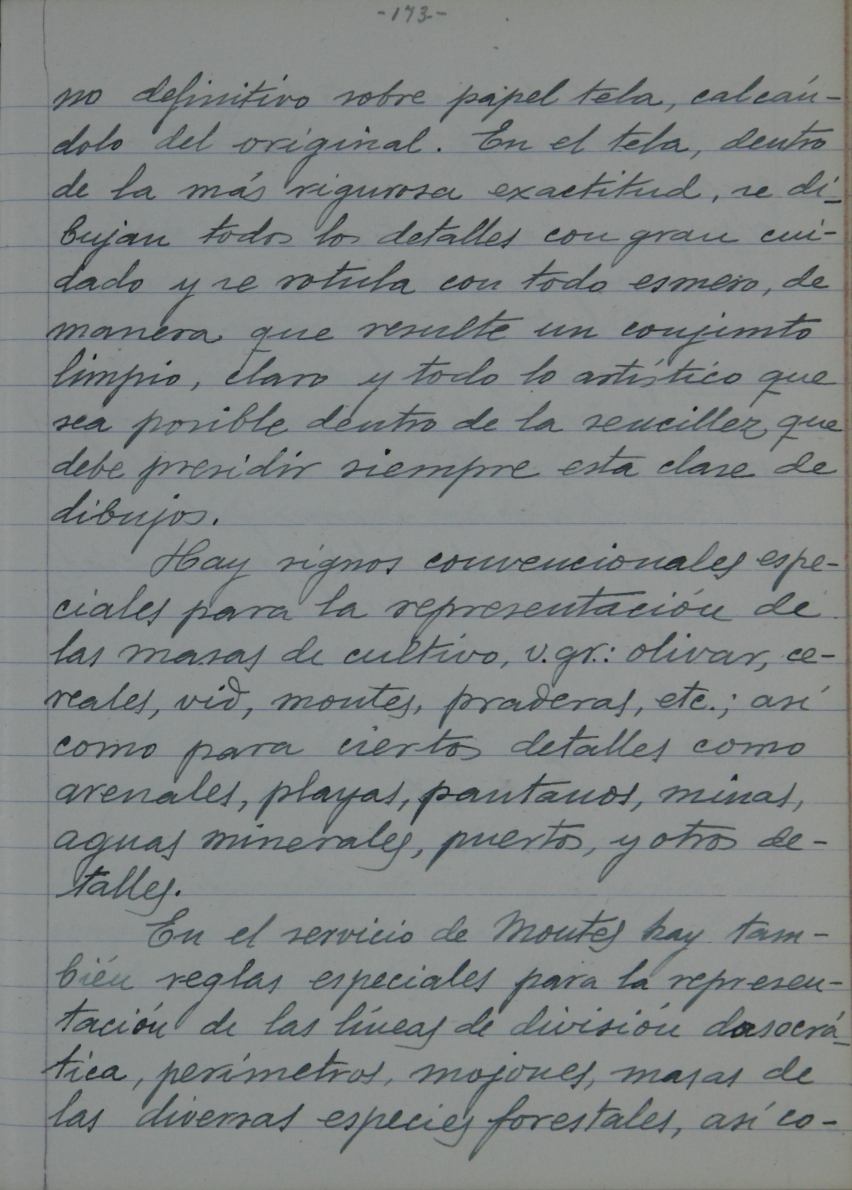 -173-
no definitivo sobre papel tela, calcán-
dolo del original. En el tela, dentro
de la más rigurosa exactitud, se di-
bujan todos los detalles con gran cui-
dado y se rotula con todo esmero, de
manera que resulte un conjunto
limpio, claro y todo lo artístico que
sea posible dentro de la sencillez que
debe presidir siempre esta clase de
dibujos.
Hay signos convencionales espe-
ciales para la representación de
las masas de cultivo, v.gr.: olivar, ce-
reales, vid, montes, praderas, etc.; así
como para ciertos detalles como
arenales, playas, pantanos, minas,
aguas minerales, puertos, y otros de-
talles.
En el servicio de Montes hay tam-
bién reglas especiales para la represen-
tación de las líneas de división dasocrá-
tica, perímetros, mojones, masas de
las diversas especies forestales, así co-